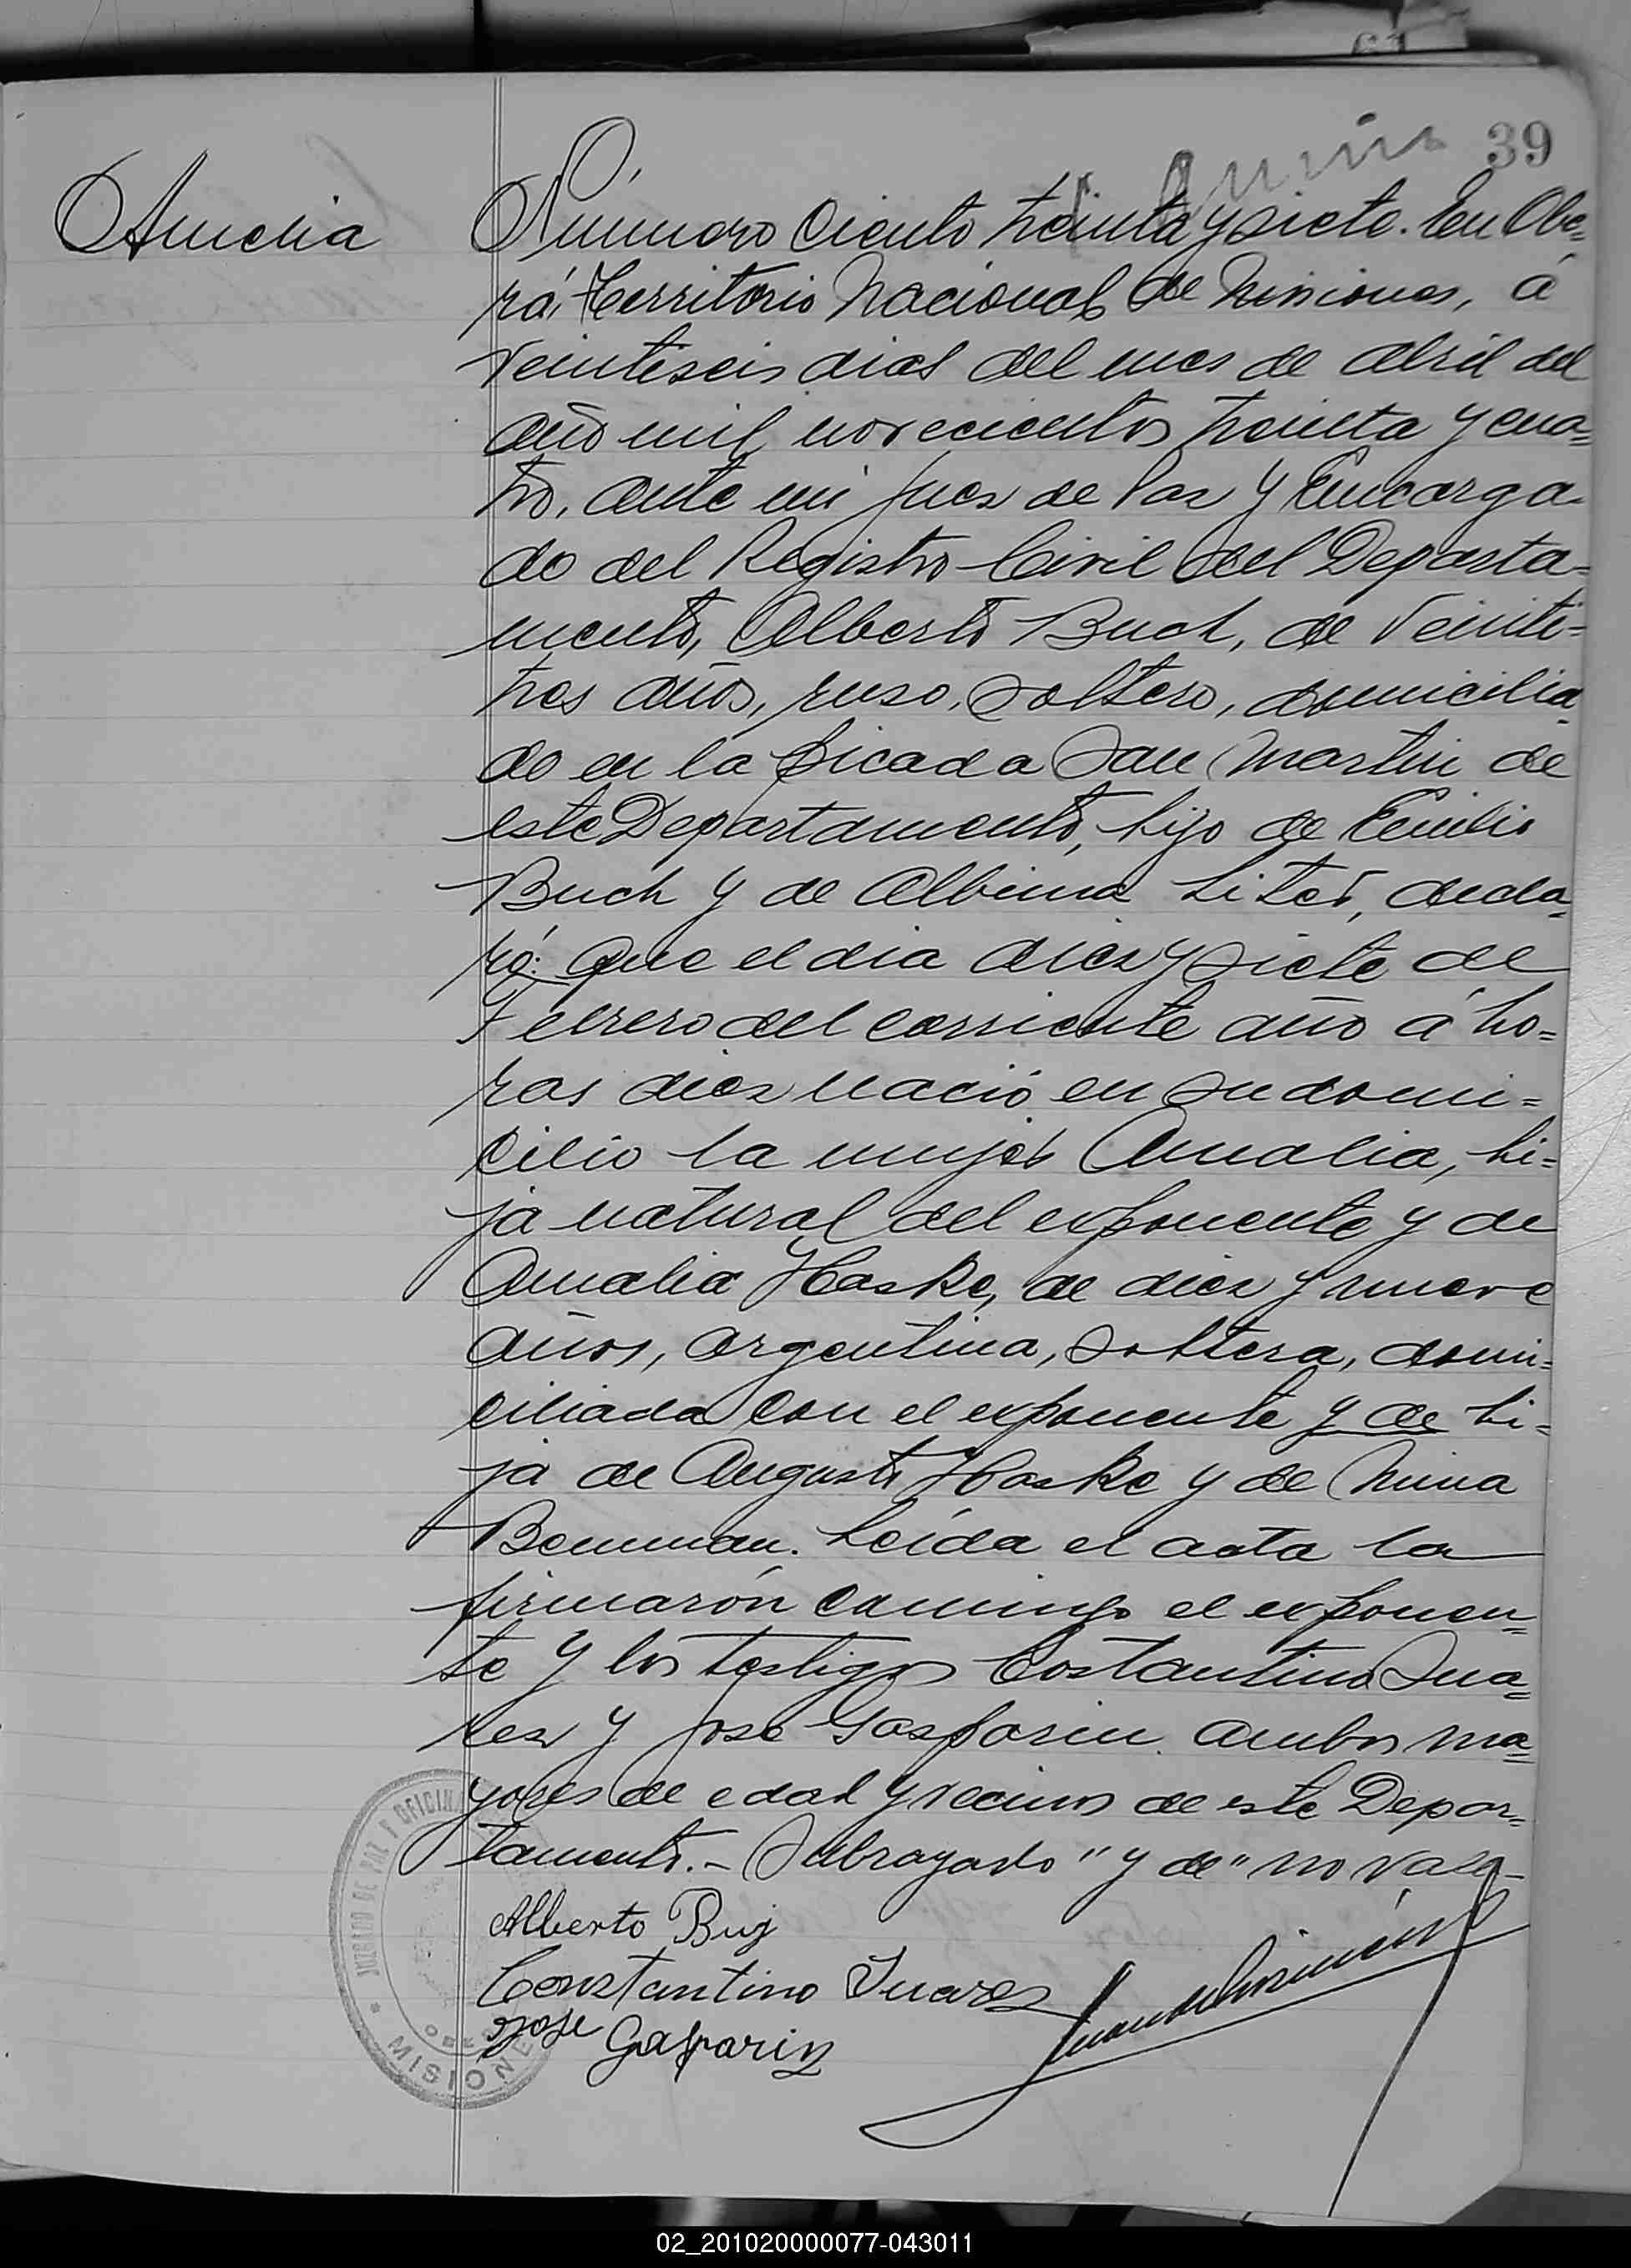 39
Amelia
Número Ciento treinta y siete. En Obe=
rá, Territorio Nacional de Misiones, á
veintiseis dias del mes de Abril del
año mil novecientos treinta y cua=
tro, ante mi Juez de Paz y Encarga-
do del Registro Civil del Departa-
mento, Alberto Buch, de veinti=
tres años, ruso, soltero, domicilia-
do en la picada San Martin de
este Departamento, hijo de Emilio
Buch y de Albina declа-
ró: Que el dia diez y siete de
Febrero del corriente año á ho=
ras diez nació en su domi=
cilio la mujer Amalia, hi=
ja natural del exponente y de
Amalia Haske, de diez y nueve
años, argentina, soltera, domi=
ciliada con el exponente y de hi=
ja de Augusto Haske y de Mina
Bemman. Leída el acta la
firmarón conmigo el exponen=
te y los testigos Costantino Sua=
res y José Gasparin ambos ma=
yores de edad y vecinos de este Depar=
tamento.- Subrayado "y de" no vale-
Alberto Buj
Constantino Suarez
Jose Gasparin
JUZGADO DE PAZ Y OFICINA
MISIONES
02_201020000077-043011